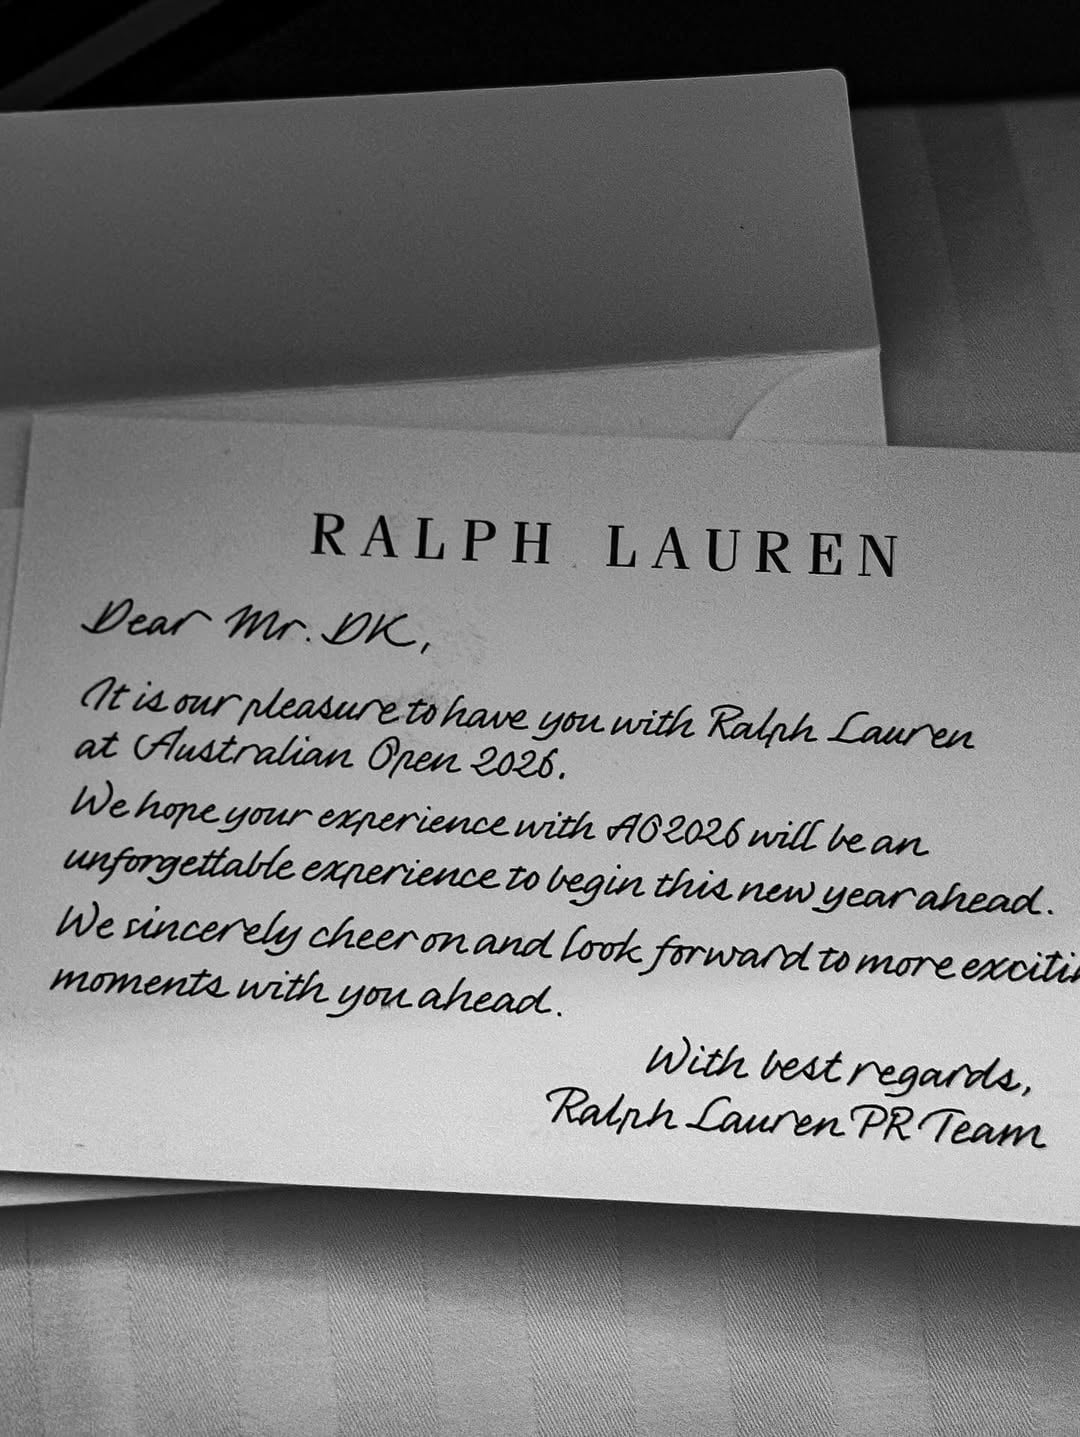 RALPH LAUREN
Dear Mr. DK,
It is our pleasure to have you with Ralph Lauren
at Australian Open 2026.
We hope your experience with AO2026 will be an
unforgettable experience to begin this new year ahead.
We sincerely cheer on and look forward to more exciti
moments with you ahead.
With best regards,
Ralph Lauren PR Team